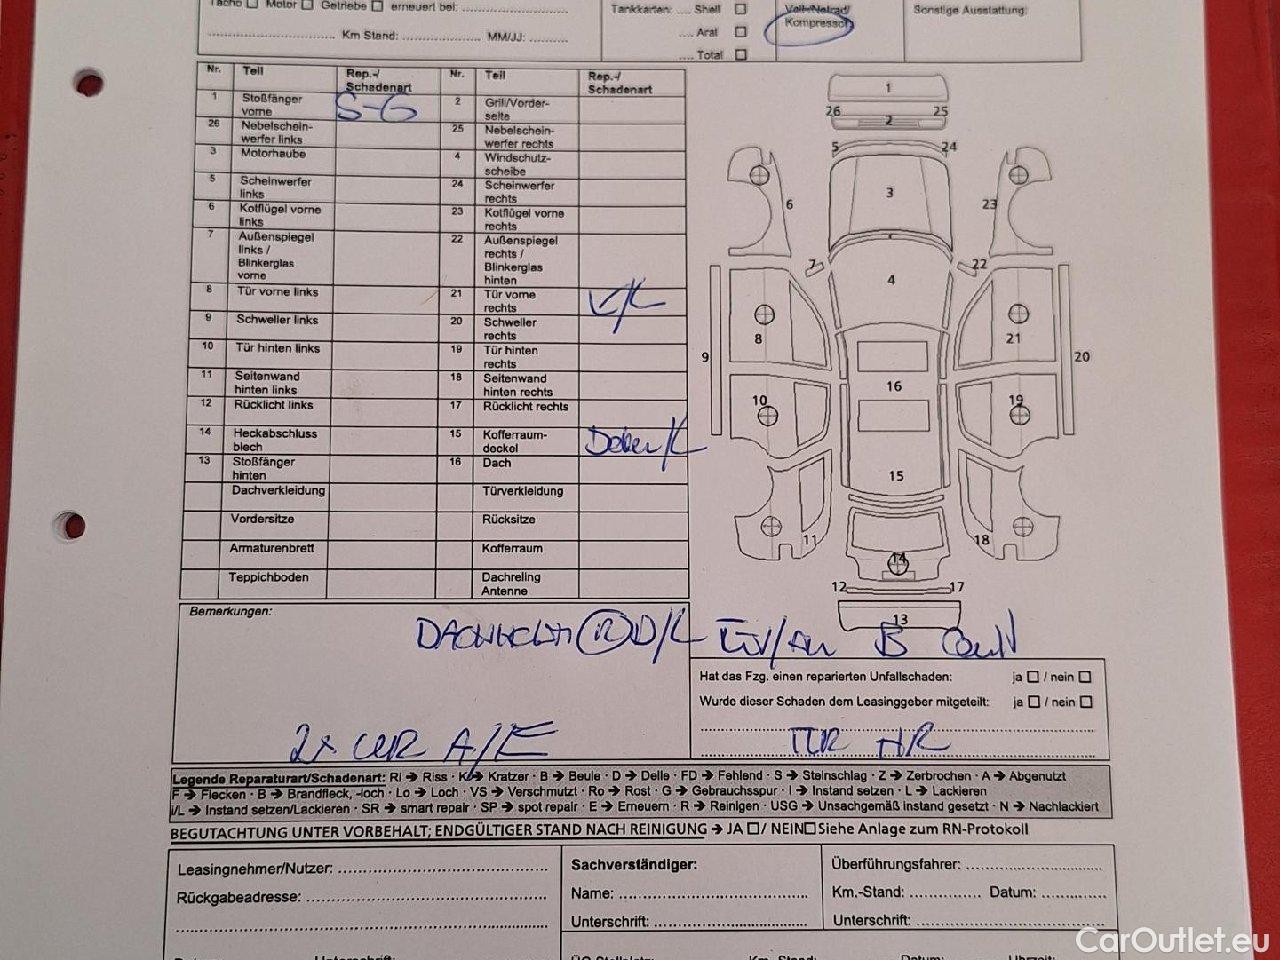 Tacho Motor Getriebe erneuert bei:
Km Stand: MM/JJ:
Tankkarten: Shell
Aral
Total
Voll-/Notrad/
Kompressor
Sonstige Ausstattung:
Nr. Teil Rep.-/ Schadenart Nr. Teil Rep.-/ Schadenart
1 Stoßfänger vorne S-G 2 Grill/Vorder-seite
26 Nebelschein-werfer links 25 Nebelschein-werfer rechts
3 Motorhaube 4 Windschutz-scheibe
5 Scheinwerfer links 24 Scheinwerfer rechts
6 Kotflügel vorne links 23 Kotflügel vorne rechts
7 Außenspiegel links / Blinkerglas vorne 22 Außenspiegel rechts / Blinkerglas hinten
8 Tür vorne links 21 Tür vorne rechts
9 Schweller links 20 Schweller rechts
10 Tür hinten links 19 Tür hinten rechts
11 Seitenwand hinten links 18 Seitenwand hinten rechts
12 Rücklicht links 17 Rücklicht rechts
14 Heckabschluss blech 15 Kofferraum-deckel
13 Stoßfänger hinten 16 Dach
Dachverkleidung Türverkleidung
Vordersitze Rücksitze
Armaturenbrett Kofferraum
Teppichboden Dachreling Antenne
1
26 25
2
5 24
3
6 23
7 22
4
8 21
9 20
16
10 19
15
11 18
14
12 17
13
Bemerkungen:
R D/L
2x A/E
Hat das Fzg. einen reparierten Unfallschaden: ja / nein
Wurde dieser Schaden dem Leasinggeber mitgeteilt: ja / nein
TÜR HR
Legende Reparaturart/Schadenart: Ri → Riss · K → Kratzer · B → Beule · D → Delle · FD → Fehlend · S → Steinschlag · Z → Zerbrochen · A → Abgenutzt
F → Flecken · B → Brandfleck, -loch · Lo → Loch · VS → Verschmutzt · Ro → Rost · G → Gebrauchsspur · I → Instand setzen · L → Lackieren
I/L → Instand setzen/Lackieren · SR → smart repair · SP → spot repair · E → Erneuern · R → Reinigen · USG → Unsachgemäß instand gesetzt · N → Nachlackiert
BEGUTACHTUNG UNTER VORBEHALT; ENDGÜLTIGER STAND NACH REINIGUNG → JA / NEIN Siehe Anlage zum RN-Protokoll
Leasingnehmer/Nutzer:
Rückgabeadresse:
Sachverständiger:
Name:
Unterschrift:
Überführungsfahrer:
Km.-Stand: Datum:
Unterschrift:
CarOutlet.eu